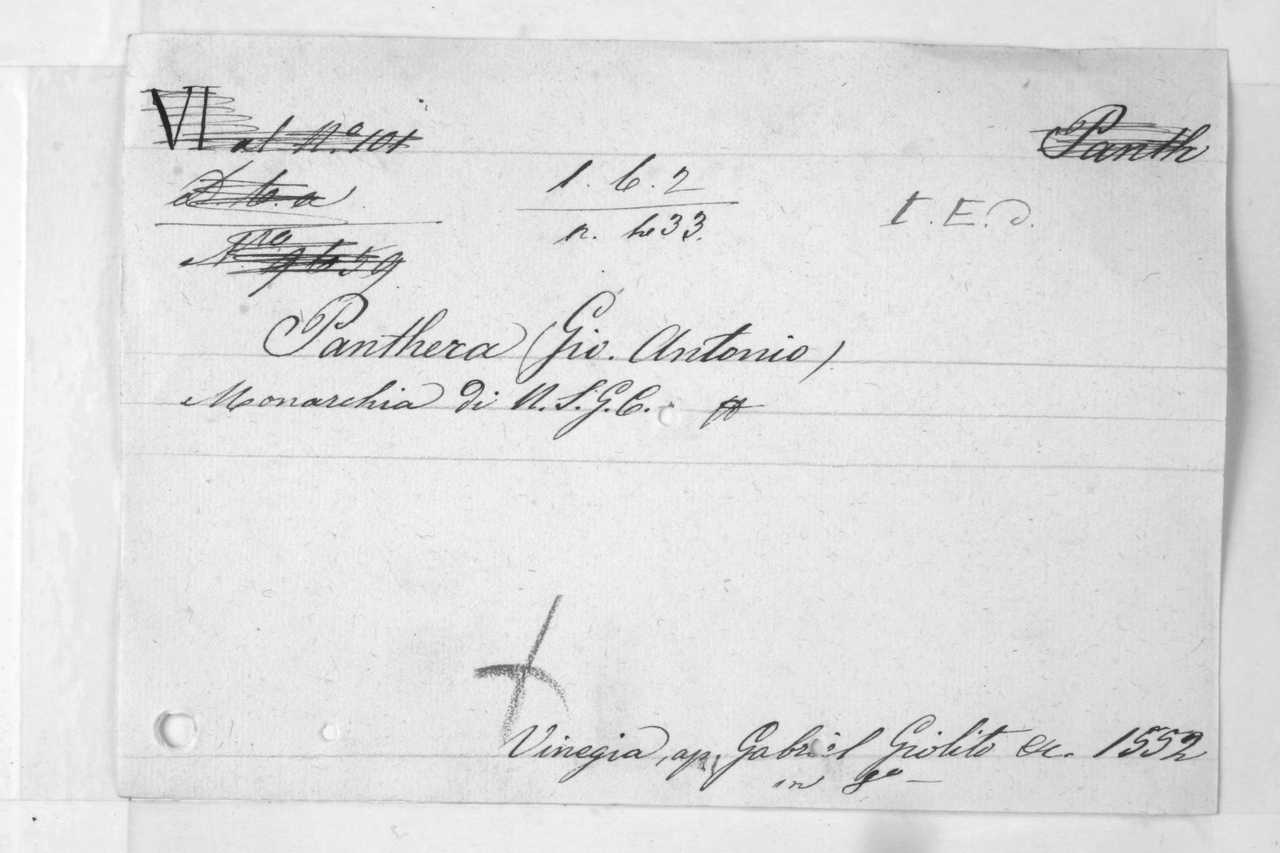 VI al N.º 101
Panth
D. 6. a
1. 6. 2
I. E. d.
N.ro 9659
n. 33.
Panthera (Gio. Antonio)
Monarchia di N.S.G.C.
Vinegia, ap. Gabriel Giolito &c. 1552
in 8º